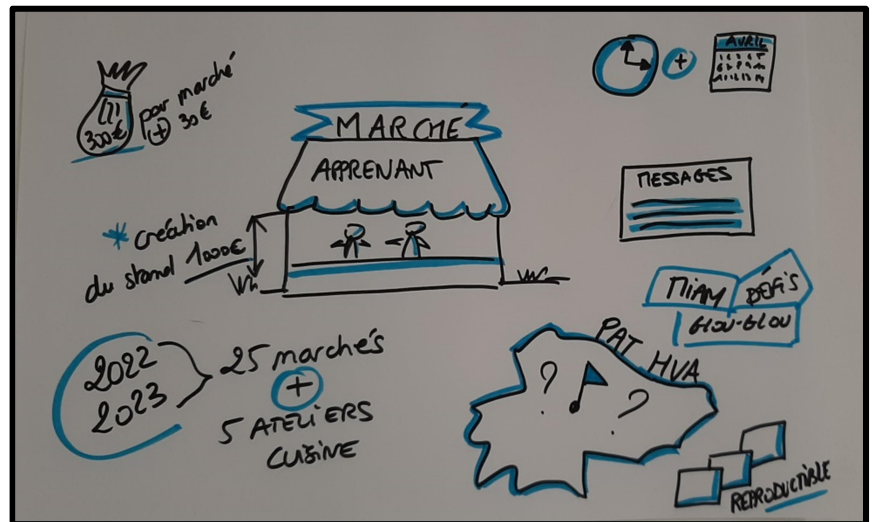 300€
par marché
+ 30€
MARCHÉ
APPRENANT
* création
du stand 1000€
2022
2023
25 marchés
+
5 ATELIERS
CUISINE
+
AVRIL
MESSAGES
MIAM
DÉFIS
GLOU-GLOU
PAT HVA
? ?
REPRODUCTIBLE